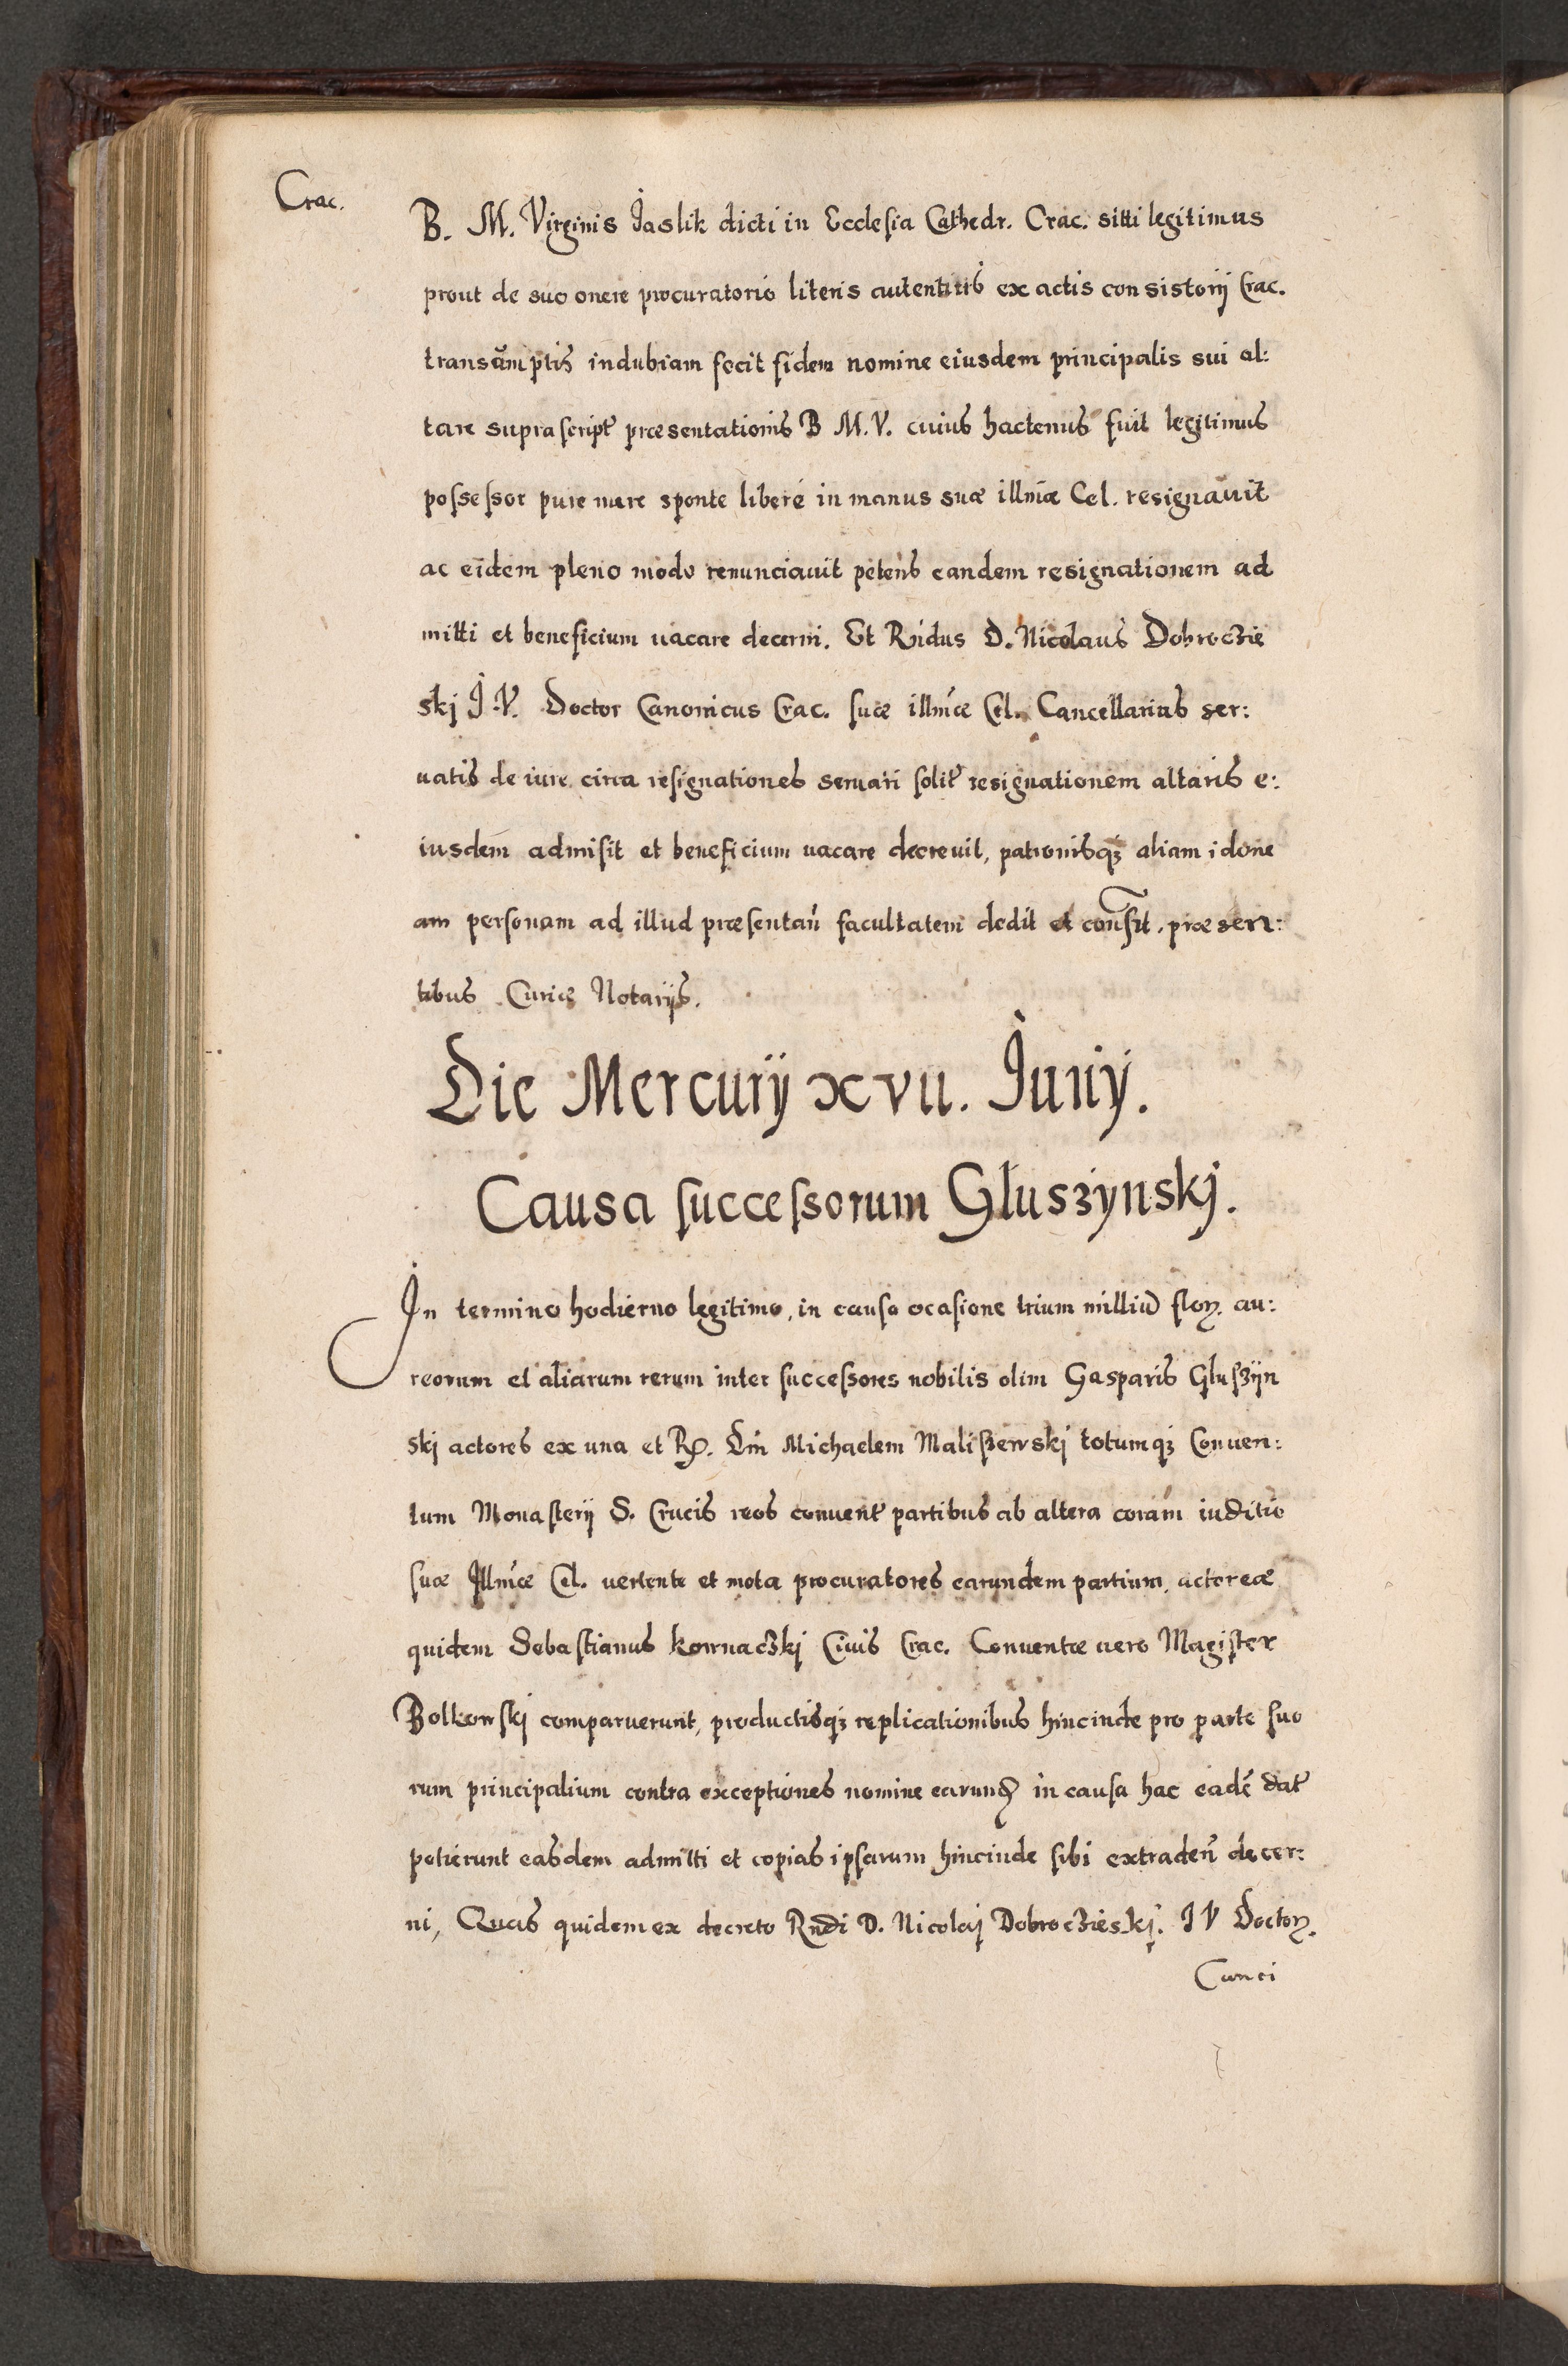 Crac.
B. M. Virginis Jaslik dicti in Ecclesia Cathedr. Crac. sitti legitimus
prout de suo onere procuratorio literis autenticis ex actis consistorij Crac.
transũmptis indubiam fecit fidem nomine eiusdem principalis sui al:
tare suprascript̃ præsentationis B M. V. cuius hactenus fuit legitimus
possessor pure mere sponte liberé in manus suæ illm̃æ Cel. resignavit
ac eidem pleno modo renunciavit petens eandem resignationem ad
mitti et beneficium vacare decerni. Et R̃idus D. Nicolaus Dobroczie
skj J. V. Doctor Canonicus Crac. suæ illm̃æ Cel. Cancellarius ser:
vatis de iure circa resignationes servari solit̃ resignationem altaris e:
iusdem admisit et beneficium vacare decrevit, patronisqȝ aliam idone
am personam ad illud præsentañ facultatem dedit et conc̃sit, præsen:
tibus Curiæ Notarijs.
Die Mercurij xvii. Junij.
Causa successorum Gluszynskj.
In termino hodierno legitimo, in causa ocasione trium milliũ floꝝ. au:
reorum et aliarum rerum inter successores nobilis olim Gasparis Gluszÿn
skj actores ex una et R͂. Dm̃ Michaelem Maliszewskj totumqȝ Conven:
tum Monasterij S. Crucis reos convent̃ partibus ab altera coram iuditio
suæ Illm̃æ Cel. vertente et mota procuratores earundem partium, actoreæ
quidem Sebastianus Kownaczkj Civis Crac. Conventæ vero Magister
Bolkowskj comparverunt, productisqȝ replicationibus hincinde pro parte suo
rum principalium contra exceptiones nomine earunð in causa hac eadẽ dat̃
petierunt easdem admitti et copias ipsarum hincinde sibi extradeñ decer:
ni, Quas quidem ex decreto Rndi D. Nicolaj Dobroczieskj. J V Doctoꝝ.